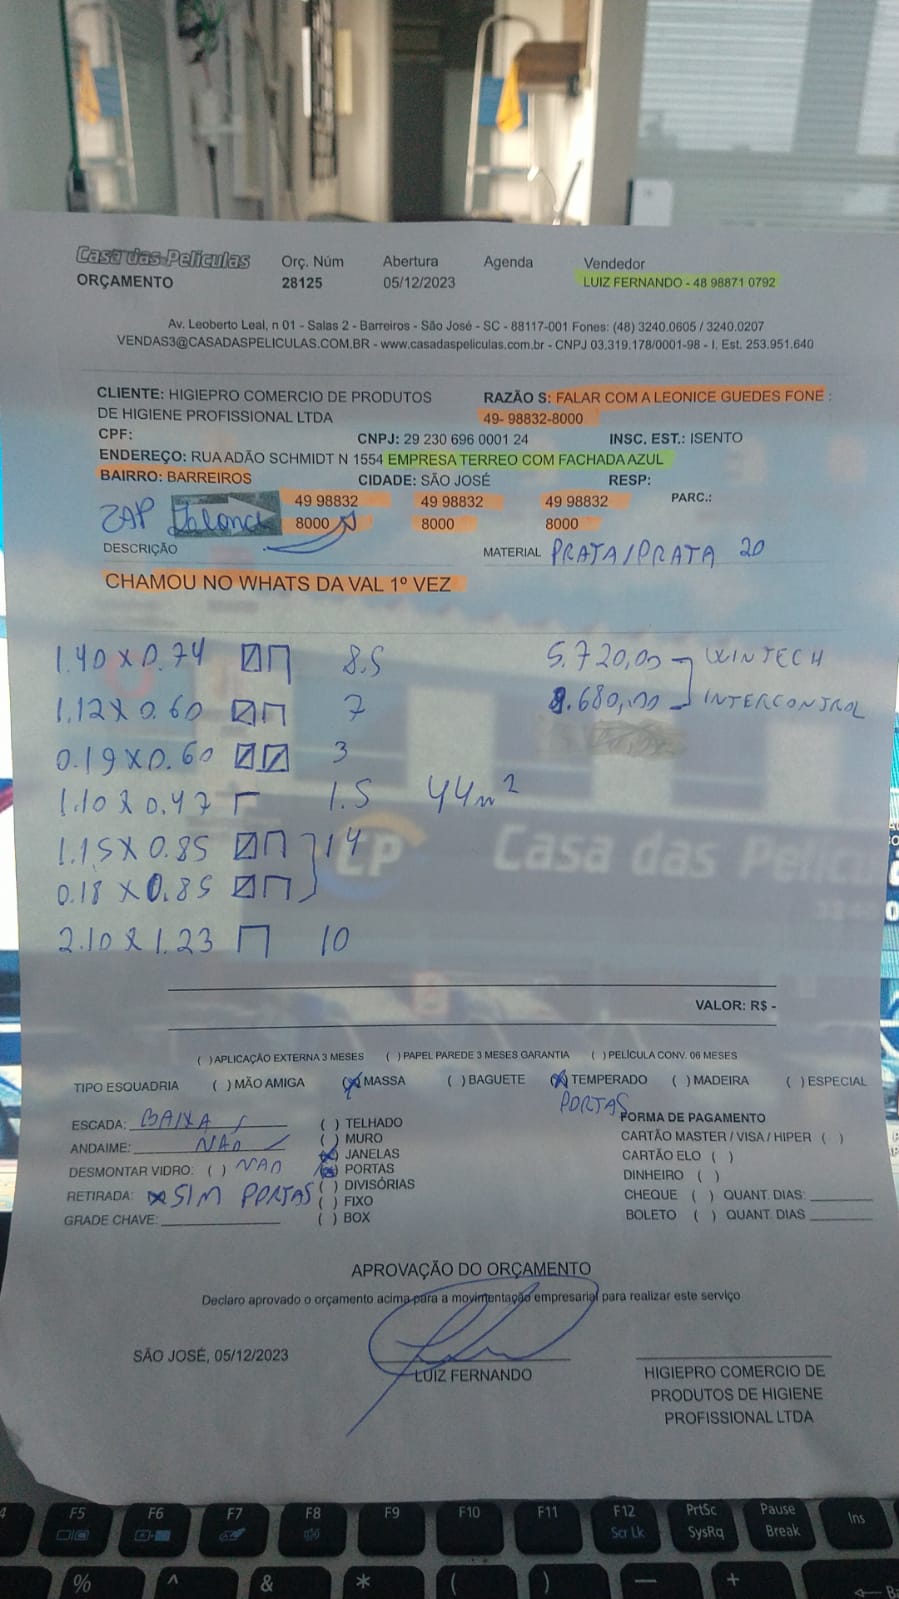 Casa das Películas
ORÇAMENTO
Orç. Núm
28125
Abertura
05/12/2023
Agenda
Vendedor
LUIZ FERNANDO - 48 98871 0792
Av. Leoberto Leal, n 01 - Salas 2 - Barreiros - São José - SC - 88117-001 Fones: (48) 3240.0605 / 3240.0207
VENDAS3@CASADASPELICULAS.COM.BR - www.casadaspeliculas.com.br - CNPJ 03.319.178/0001-98 - I. Est. 253.951.640
CLIENTE: HIGIEPRO COMERCIO DE PRODUTOS
DE HIGIENE PROFISSIONAL LTDA
RAZÃO S: FALAR COM A LEONICE GUEDES FONE :
49- 98832-8000
CPF:
CNPJ: 29 230 696 0001 24
INSC. EST.: ISENTO
ENDEREÇO: RUA ADÃO SCHMIDT N 1554 EMPRESA TERREO COM FACHADA AZUL
BAIRRO: BARREIROS
CIDADE: SÃO JOSÉ
RESP:
49 98832
8000
49 98832
8000
49 98832
8000
PARC.:
ZAP
DESCRIÇÃO
MATERIAL PRATA/PRATA 20
CHAMOU NO WHATS DA VAL 1º VEZ
1.40 x 0.74 8.5
5.720,00 WINTECH
1.12 x 0.60 7
8.680,00 INTERCONTROL
0.19 x 0.60 3
1.10 x 0.47 1.5 44m²
1.15 x 0.85 14
0.18 x 0.85
2.10 x 1.23 10
CP Casa das Pelícu
VALOR: R$ -
( ) APLICAÇÃO EXTERNA 3 MESES ( ) PAPEL PAREDE 3 MESES GARANTIA ( ) PELÍCULA CONV. 06 MESES
TIPO ESQUADRIA ( ) MÃO AMIGA (X) MASSA ( ) BAGUETE (X) TEMPERADO ( ) MADEIRA ( ) ESPECIAL
PORTAS
ESCADA: BAIXA
ANDAIME: NÃO
DESMONTAR VIDRO: ( ) NÃO
RETIRADA: X SIM PORTAS
GRADE CHAVE:
( ) TELHADO
( ) MURO
(X) JANELAS
(X) PORTAS
( ) DIVISÓRIAS
( ) FIXO
( ) BOX
FORMA DE PAGAMENTO
CARTÃO MASTER / VISA / HIPER ( )
CARTÃO ELO ( )
DINHEIRO ( )
CHEQUE ( ) QUANT. DIAS:
BOLETO ( ) QUANT. DIAS
APROVAÇÃO DO ORÇAMENTO
Declaro aprovado o orçamento acima para a movimentação empresarial para realizar este serviço
SÃO JOSÉ, 05/12/2023
LUIZ FERNANDO
HIGIEPRO COMERCIO DE
PRODUTOS DE HIGIENE
PROFISSIONAL LTDA
F5 F6 F7 F8 F9 F10 F11 F12 PrtSc Pause Ins
Scr Lk SysRq Break
% ^ & * ( ) — +